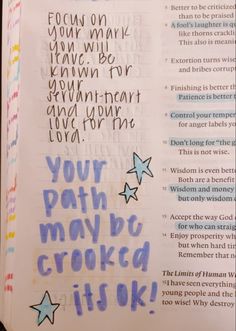 Focus on
your mark
you will
leave. Be
known for
your
servant-heart
and your
love for the
Lord.
Your
path
may be
crooked
its ok!
5 Better to be criticized
than to be praised
6 A fool's laughter is qu
like thorns crackli
This also is meani
7 Extortion turns wise
and bribes corrupt
8 Finishing is better th
Patience is better t
9 Control your temper
for anger labels yo
10 Don't long for "the g
This is not wise.
11 Wisdom is even bett
Both are a benefit
12 Wisdom and money
but only wisdom c
13 Accept the way God d
for who can straigh
14 Enjoy prosperity wh
but when hard tim
Remember that no
The Limits of Human W
15 I have seen everything
young people and the l
too wise! Why destroy